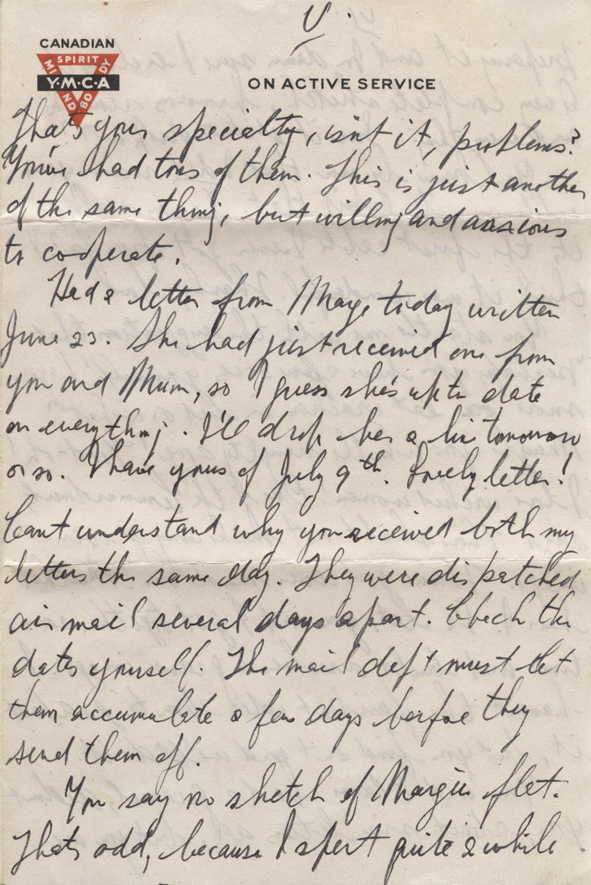 V.
CANADIAN
SPIRIT
MIND
BODY
Y·M·C·A
ON ACTIVE SERVICE
That's your specialty, isn't it, problems?
You've had tons of them. This is just another
of the same thing, but willing and anxious
to cooperate.
Had a letter from Marge today written
June 23. She had just received one from
you and Mum, so I guess she's up to date
on everything. I'll drop her a line tomorrow
or so. I have yours of July 9th. Lovely letter!
Can't understand why you received both my
letters the same day. They were dispatched
air mail several days apart. Check the
dates yourself. The mail dep't must let
them accumulate a few days before they
send them off.
You say no sketch of Margie's flat.
Thats odd, because I spent quite a while